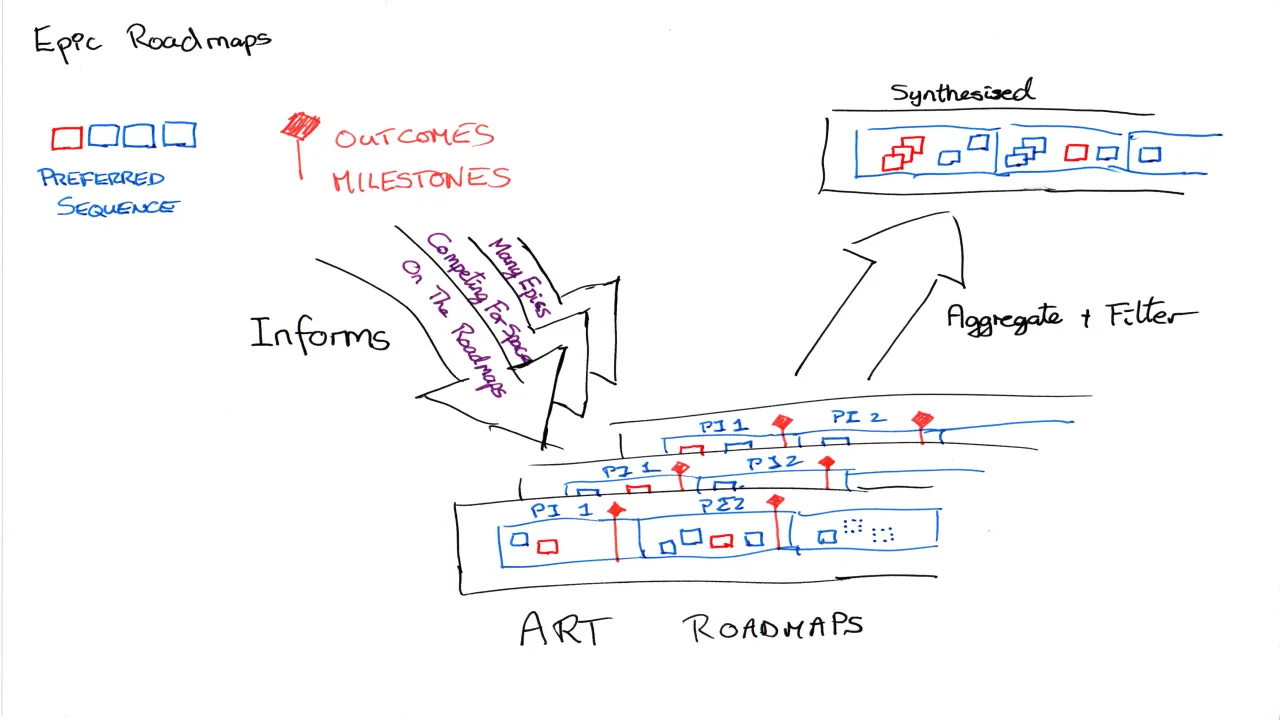 Epic Roadmaps
Synthesised
OUTCOMES
MILESTONES
PREFERRED
SEQUENCE
Many Epics
Competing For Space
On The Roadmaps
Informs
Aggregate + Filter
PI 1
PI 2
PI 1
PI 2
PI 1
PI 2
ART ROADMAPS